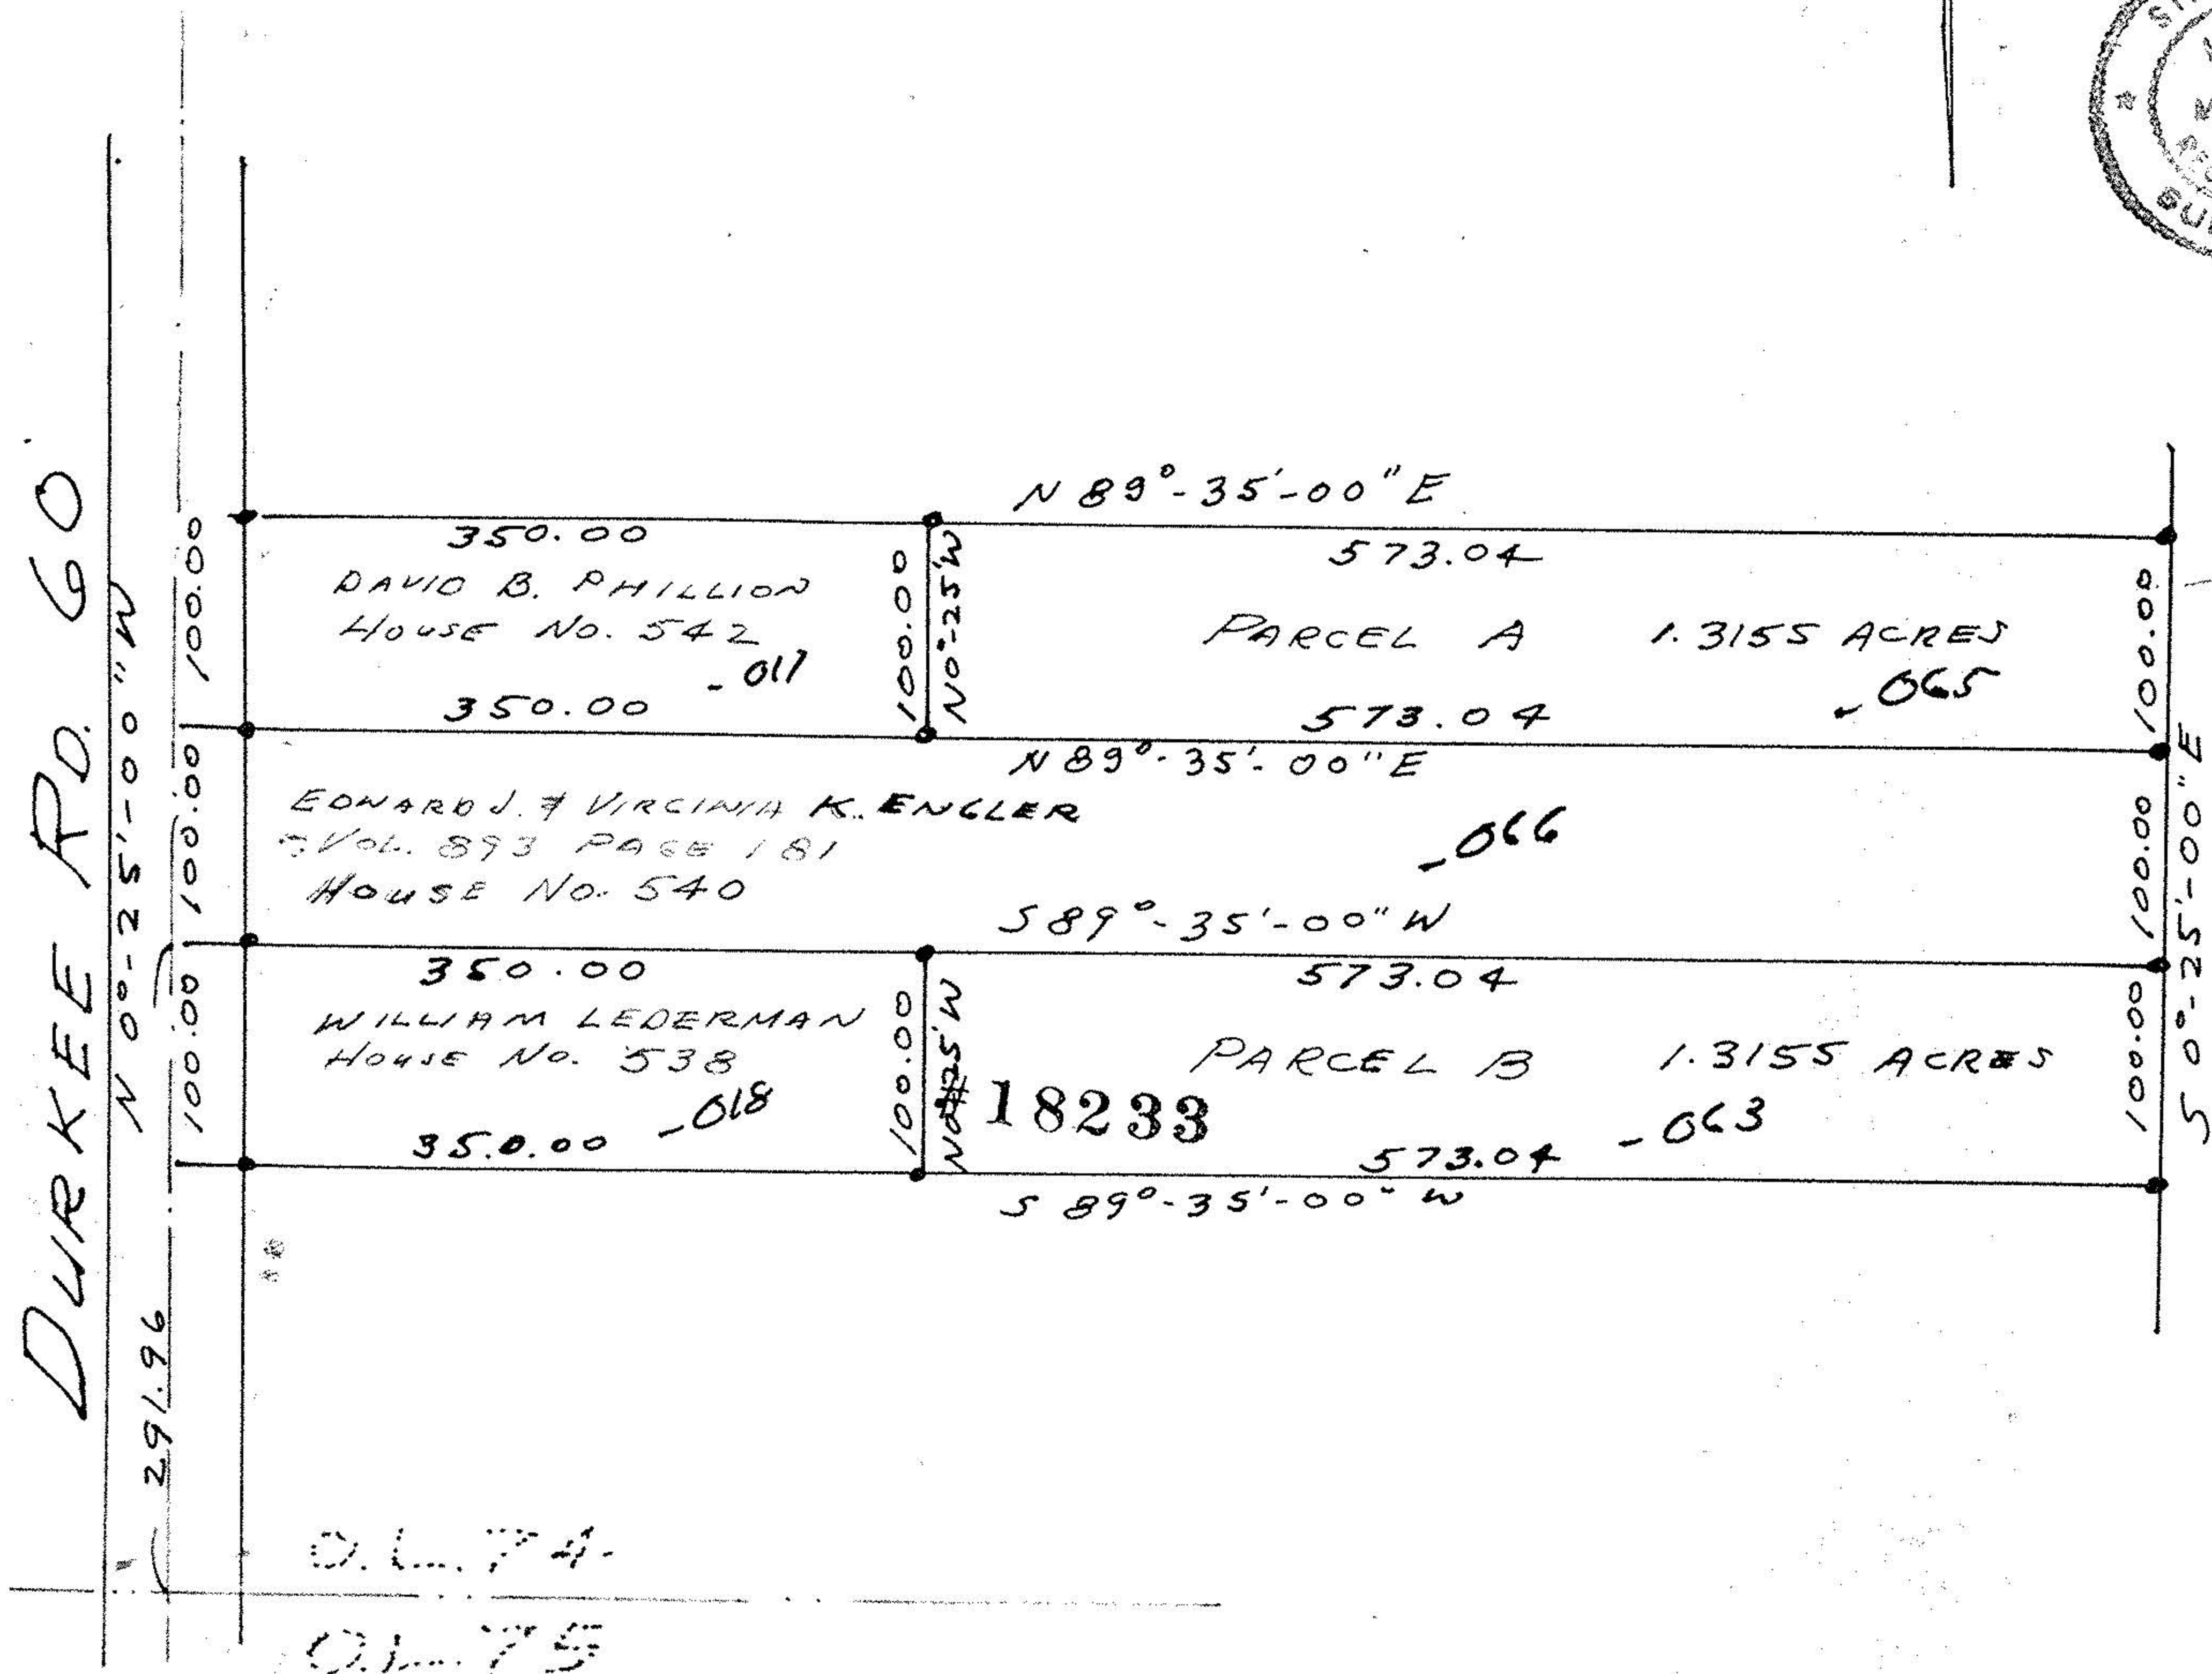 DURKEE RD. 60'
N 0°-25'-00" W
100.00
100.00
100.00
291.96
N 89°-35'-00" E
350.00
573.04
DAVID B. PHILLION
HOUSE NO. 542
-017
350.00
100.00
N0°-25'W
PARCEL A 1.3155 ACRES
-065
573.04
100.00
N 89°-35'-00" E
EDWARD J. & VIRGINIA K. ENGLER
VOL. 893 PAGE 181
HOUSE NO. 540
-066
100.00
S 0°-25'-00" E
S 89°-35'-00" W
350.00
573.04
WILLIAM LEDERMAN
HOUSE NO. 538
-018
350.00
100.00
N0°-25'W
PARCEL B 1.3155 ACRES
# 18233
-063
573.04
100.00
S 89°-35'-00" W
O.L. 74
O.L. 75